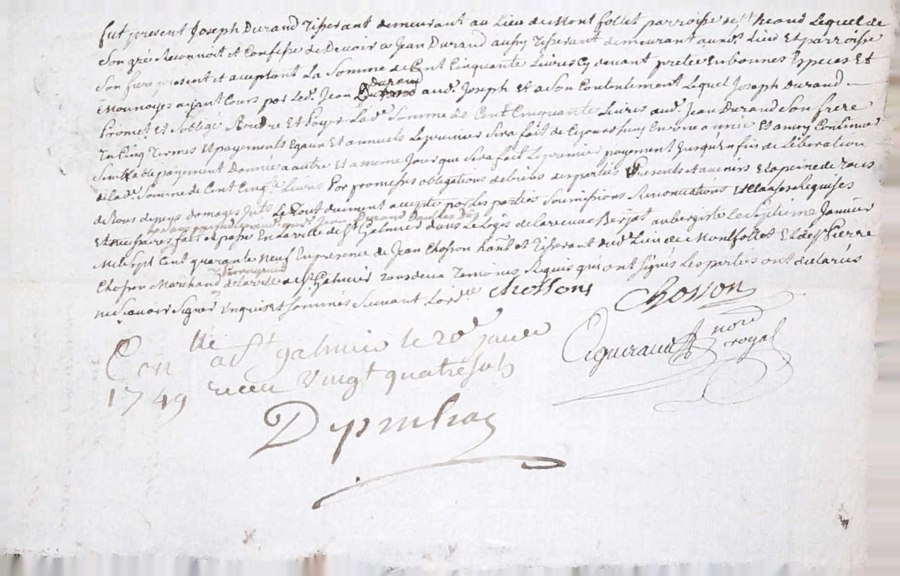 fut présent Joseph Durand Tisserant demeurant au Lieu de Montfollet parroisse de st heand Lequel de
Son gré Reconnoit et Confesse de Devoir a Jean Durand aussy Tisserant demeurant aud. Lieu Et parroisse
Son frere present et aceptant La Somme de Cent Cinquante Livres Cy devant pretée En bonnes Especes Et
Monnoyes ayant Cours par Led. Jean Durand aud. Joseph Et a Son Contentement Lequel Joseph Durand
Promet et s'oblige Rendre Et Payer Lade. Somme de Cent Cinquante Livres aud. Jean Durand Son frere
En Cinq Termes et payements Egaux Et annuels Le premier Sera fait de Cejourdhuy En une année Et ainsy Continuer
Semblable payement D'année a autre et a meme Jour que Sera fait Le premier payement Jusqu'en fin de Liberation
de lade. Somme de Cent Cinqte. Livres Par promesses obligations de biens des parties Presents et avenirs Et a peine de tous
de Nous depens domages Le tout duement accepté par Les parties Soumissions Renonciations Et Clauses requises
Jean Durand
Et necessaires fait et passé En La ville de St Galmier dans Le Logis de La veuve aubergiste Le Septieme Janvier
Mil Sept Cent quarante Neuf En presence de Jean Chosson hant et Tisserant aud. Lieu de Montfollet Et de Sr Pierre
Chosson Marchand de La ville de St Galmier Tous deux Temoins Requis qui ont Signés Les parties ont declarés
ne Scavoir Signer Enquis et Sommés Suivant Lorce. Chossons Chosson
Conlle a St galmier le 20e janvier
1749 receu vingt quatre sols
nore
royal